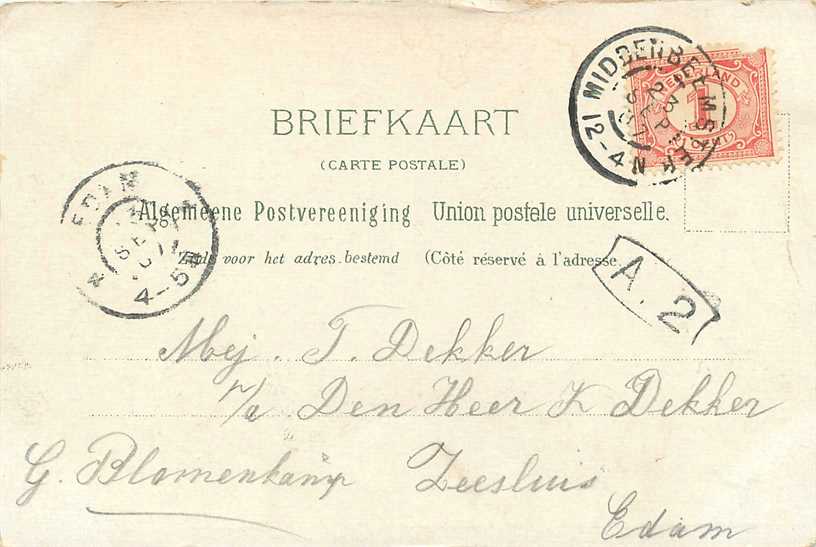 MIDDENBEEMSTER
23 SEP 01
12-4N
NEDERLAND
1
BRIEFKAART
(CARTE POSTALE)
EDAM
SEP
4-5N
Algemeene Postvereeniging Union postale universelle.
Zijde voor het adres bestemd (Côté réservé à l'adresse
A.2
Mej. T. Dekker
p/a Den Heer K Dekker
G. Blomenkamp Zeesluis
Edam